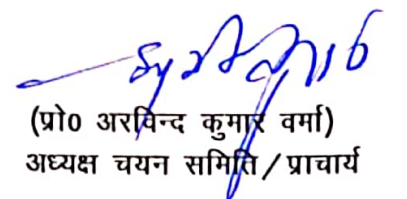 (प्रो0 अरविन्द कुमार वर्मा)
अध्यक्ष चयन समिति / प्राचार्य